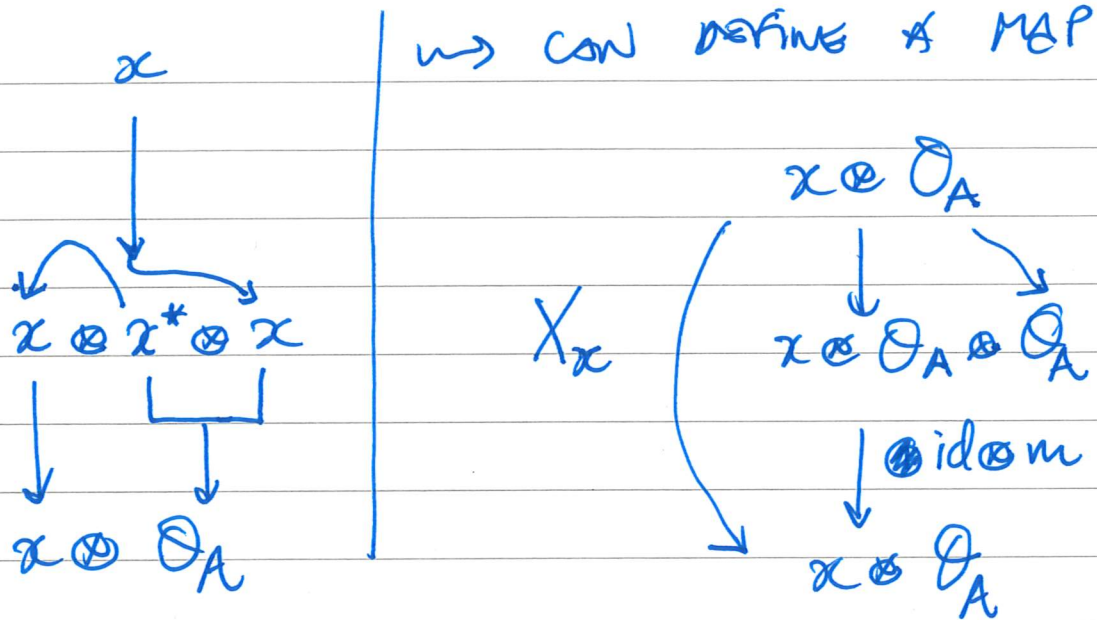 x
x ⊗ x* ⊗ x
x ⊗ O_A
⇝ CAN DEFINE A MAP
x ⊗ O_A
X_x
x ⊗ O_A ⊗ O_A
id ⊗ m
x ⊗ O_A